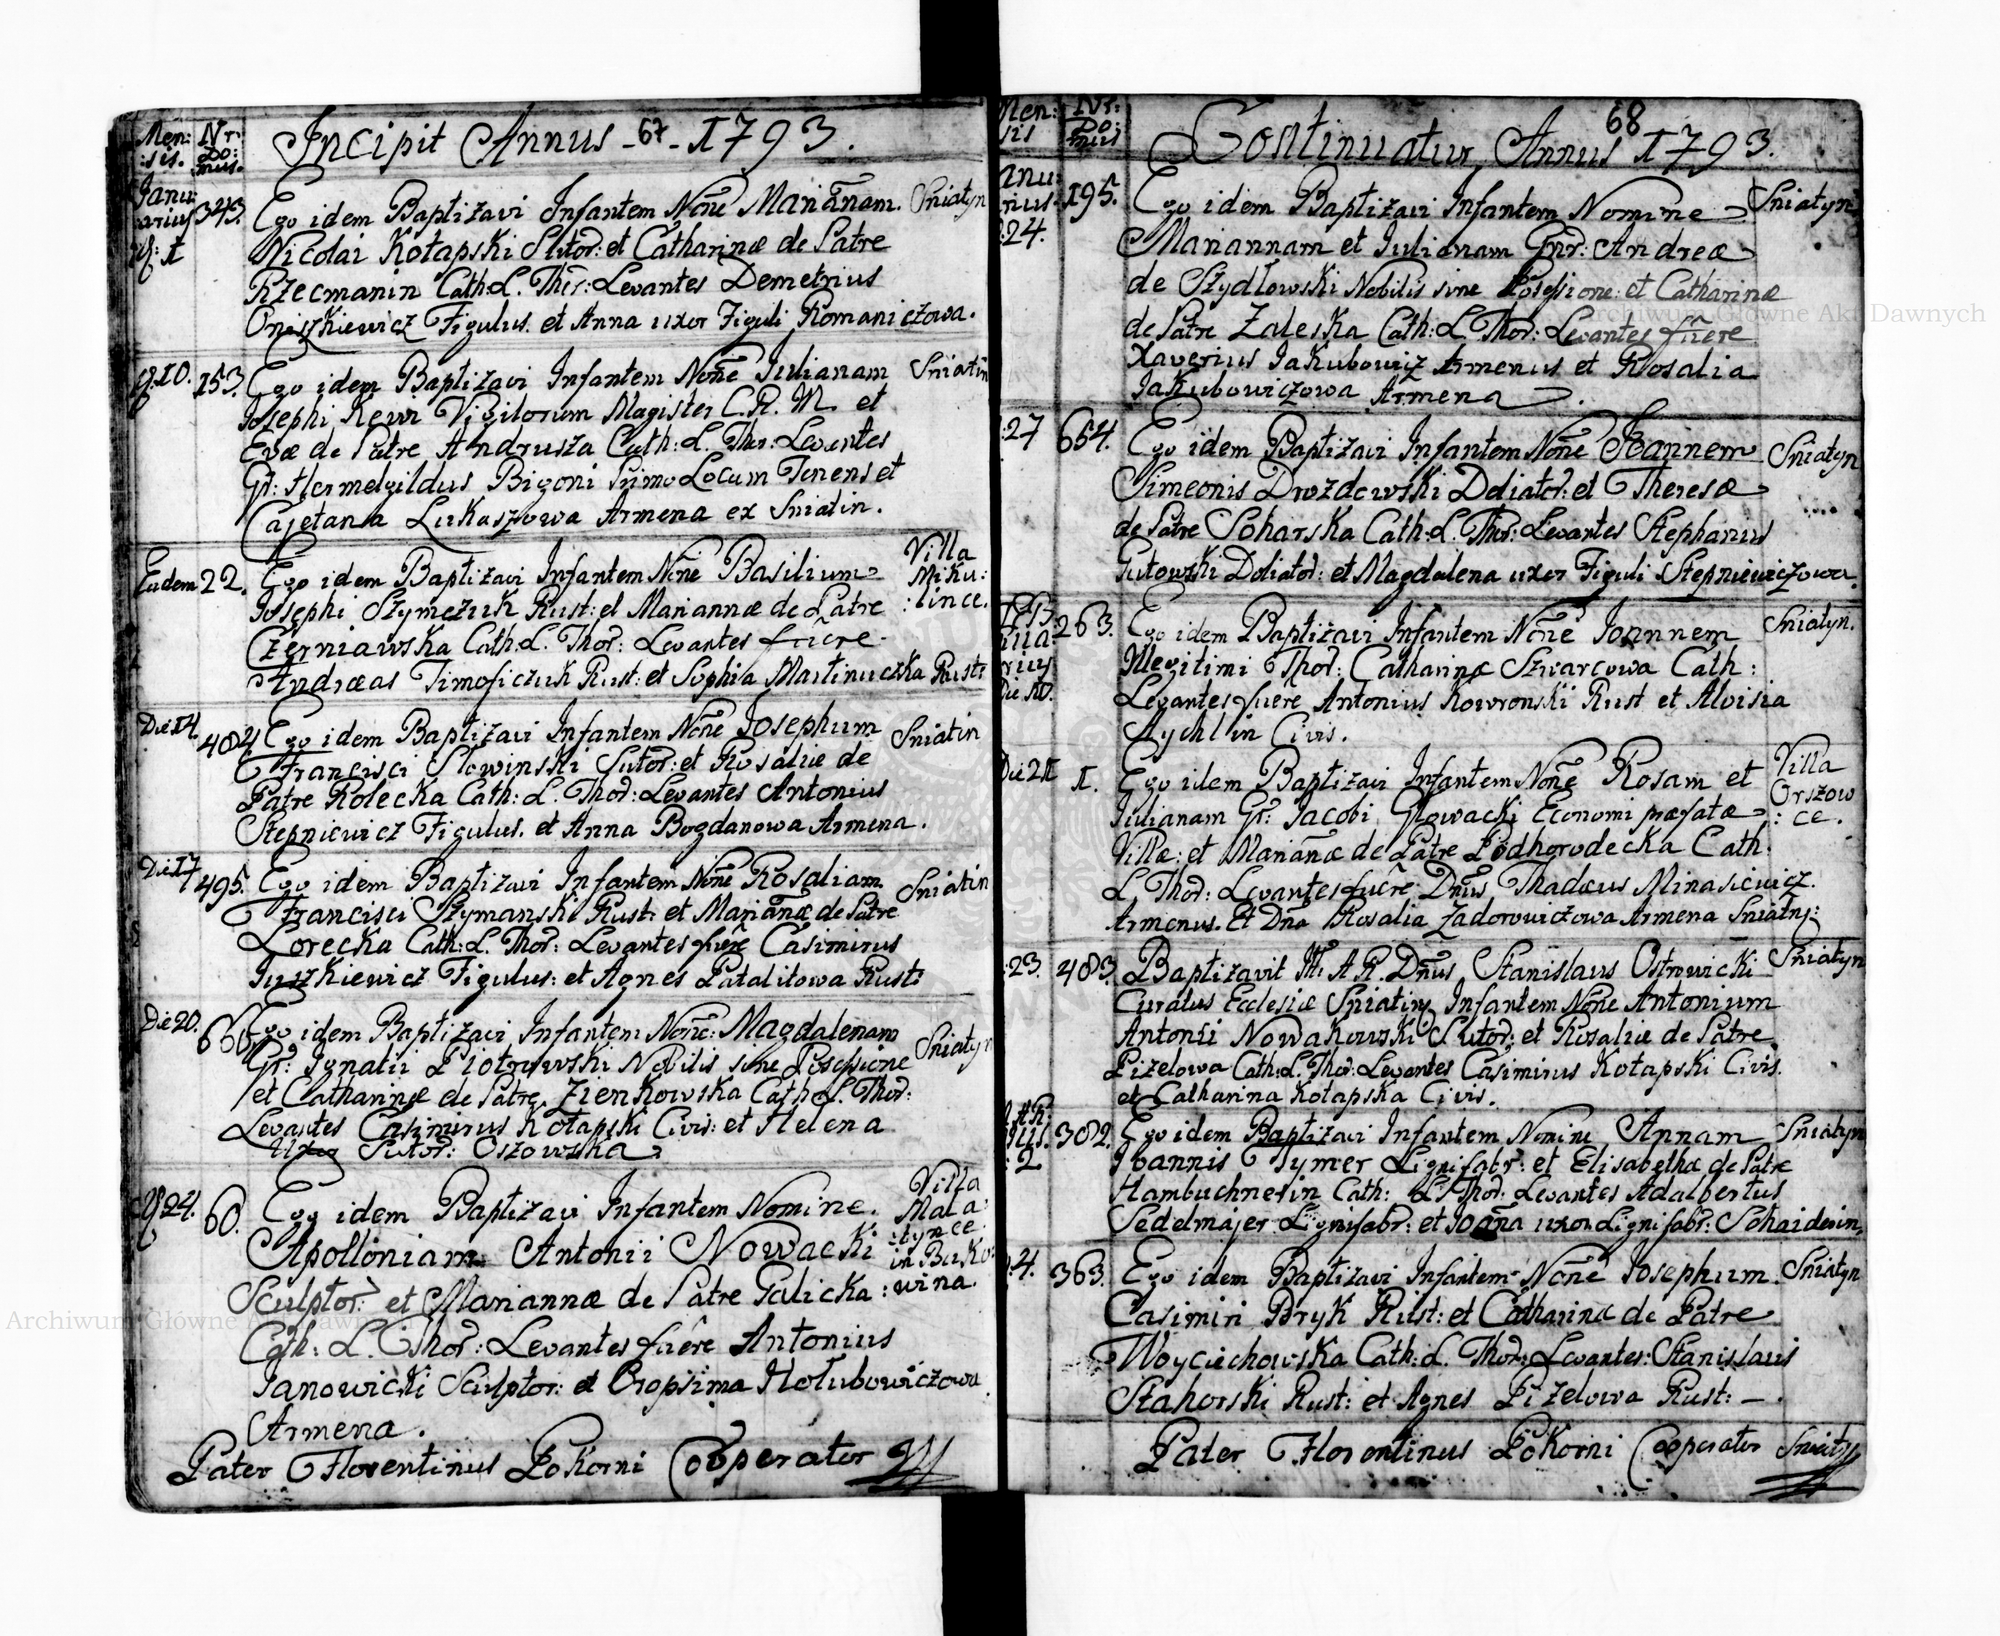 Men:
:sis.
Nr:
Do:
mus.
Incipit Annus -67- 1793.
Janu:
arius
1
343.
Ego idem Baptizavi Infantem Noñe Mariãnam. Sniatyn
Nicolai Kotapski Sutor: et Catharinæ de Patre
Rzecmanin Cath: L. Thor: Levantes Demetrius
Oniszkiewicz Figulus. et Anna uxor Figuli Romaniczowa.
10. 153. Ego idem Baptizavi Infantem Noñe Iulianam Sniatin
Iosephi Rewi Vigilorum Magister C. R. M. et
Evæ de Patre Andrusza Cath: L. Thor: Levantes
Gr: Hermelgildus Bigoni Primo Locum Tenens et
Cajetana Lukaszowa Armena ex Sniatin.
Eadem 22. Ego idem Baptizavi Infantem Noñe Basilium
Villa
Miku:
:lince.
Iosephi Szymczuk Rust: et Mariannæ de Patre
Czerniawska Cath: L. Thor: Levantes fuêre
Andræas Timoficzuk Rust: et Sophia Martinuczka Rust:
Die 14. 484 Ego idem Baptizavi Infantem Noñe Iosephum Sniatin
Francisci Slowinski Sutor: et Rosaliæ de
Patre Rolecka Cath: L. Thor: Levantes Antonius
Stepniewicz Figulus. et Anna Bogdanowa Armena.
Die 17 495. Ego idem Baptizavi Infantem Noñe Rosaliam Sniatin
Francisci Szymanski Rust: et Mariãnæ de Patre
Lorecka Cath: L. Thor: Levantes fuêre Casimirus
Juszkiewicz Figulus: et Agnes Patalitowa Rust:
Die 20. Ego idem Baptizavi Infantem Noñe: Magdalenam Sniatyn
Gr: Ignatii Piotrowski Nobilis sine Posessione
et Catharinæ de Patre Zienkowska Cath: L. Thor:
Levantes Casimirus Kotapski Civis: et Helena
Uxor Sutor: Oszowska
24. 60. Ego idem Baptizavi Infantem Nomine.
Villa
Mala:
:tynce
in Buko
:wina.
Apolloniam Antonii Nowacki
Sculptor: et Mariannæ de Patre Galicka
Cath: L. Thor: Levantes fuêre Antonius
Janowicki Sculptor: et Oropsima Holubowiczowa
Armena.
Pater Florentinus Pokorni Cooperator
Men:
sis
Nr:
Do:
mus
68
Continuatur Annus 1793.
anu:
rius.
:24.
195. Ego idem Baptizavi Infantem Nomine Sniatyn
Mariannam et Iulianam Gnr: Andreæ
de Szydlowski Nobilis sine Posessione: et Catharinæ
de Patre Zaleska Cath: L. Thor: Levantes fuêre
Xaverius Iakubowicz Armenus et Rosalia
Jakubowiczowa Armena.
:27 654. Ego idem Baptizavi Infantem Noñe Joannem Sniatyn
Simeonis Drozdowski Doliator: et Theresæ
de Patre Soharska Cath: L. Thor: Levantes Stephanus
Gutowski Doliator: et Magdalena uxor Figuli Stepniewiczowa.
rius
263. Ego idem Baptizavi Infantem Noñe Ioannem Sniatyn.
Illegitimi Thor: Catharinæ Szwarcowa Cath:
Levantes fuêre Antonius Kowronski Rust et Aloisia
Rychlin Civis.
Die 21 1. Ego idem Baptizavi Infantem Noñe Rosam et
Villa
Orszow
: ce.
Iulianam Gr: Jacobi Glowacki Economi præfatæ
Villæ: et Mariãnæ de Patre Podhorodecka Cath:
L. Thor: Levantes fuêre Dñus Thadæus Minasiewicz.
Armenus. Et Dña Rosalia Zadorowiczowa Armena Sniatyn:
:23. 483. Baptizavit M: A. R. Dñus Stanislaus Ostrowicki Sniatyn
Curatus Ecclesiæ Sniatiny Infantem Noñe Antonium
Antonii Nowakowski Sutor: et Rosaliæ de Patre
Pizelowa Cath: L. Thor: Levantes Casimirus Kotapski Civis.
et Catharina Kotapska Civis.
:2 382. Ego idem Baptizavi Infantem Nomine Annam Sniatyn
Ioannis Tymer Lignifabr: et Elisabethæ de Patre
Hambuchnerin Cath: L. Thor: Levantes Adalbertus
Sedelmajer Lignifabr: et Ioaña uxor Lignifabr: Schaiderin.
:4. 363. Ego idem Baptizavi Infantem Noñe Iosephum Sniatyn
Casimiri Bryk Rust: et Catharinæ de Patre
Woyciechowska Cath: L. Thor: Levantes: Stanislaus
Stahorski Rust: et Agnes Pizelowa Rust: —.
Pater Florentinus Pokorni Cooperator Sniatyn
Archiwum Główne Akt Dawnych
Archiwum Główne Akt Dawnych